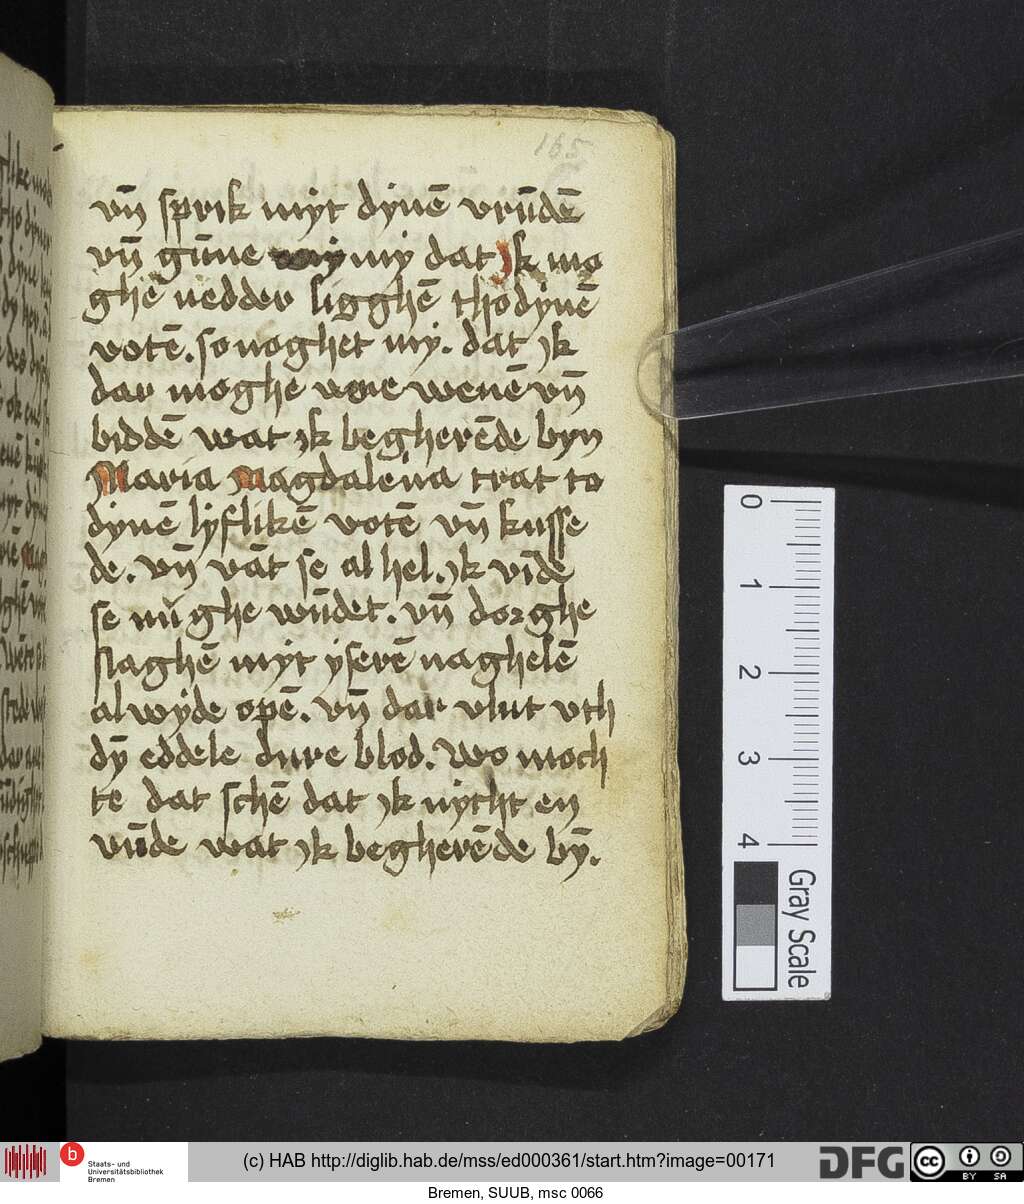 165
vn̄ sprik myt dynē vrūdē
vn̄ gūne my dat jk mo
ghē nedder ligghē tho dynē
votē. so noghet my. dat jk
dar moghe vore wenē vn̄
biddē wat jk begherēde byn
Maria Magdalena trat to
dynē lyflikē votē vn̄ kusse
de. vn̄ vāt se al hel. jk vīde
se nu ghe wūdet. vn̄ dorghe
slaghē myt yserē naghelē
al wyde opē. vn̄ dar vlut vth
dȳ eddele dure blod. Wo moch
te dat schē dat jk nytht en
vūde wat jk begherēde bȳ.
0
1
2
3
4
Gray Scale
b
Staats- und
Universitätsbibliothek
Bremen
(c) HAB http://diglib.hab.de/mss/ed000361/start.htm?image=00171
DFG
cc
BY SA
Bremen, SUUB, msc 0066